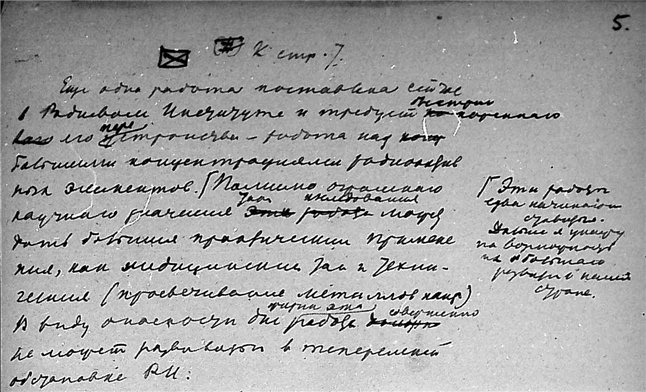 5.
К стр. 7.
Еще одна работа поставлена сейчас
в Радиевом Институте и требует быстрого коренного
его переустройства – работа над
большими концентрациями радиоактив
ных элементов. [Помимо огромного
научного значения эти исследования могут
дать большие практические примене
ния, как медицинские так и техни-
ческие (просвечивание металлов напр.)
В виду опасности для работа совершенно
не может развиваться в теперешней
обстановке РИ.
[Эти работы
едва начинают
ставиться.
на
в нашей
стране.